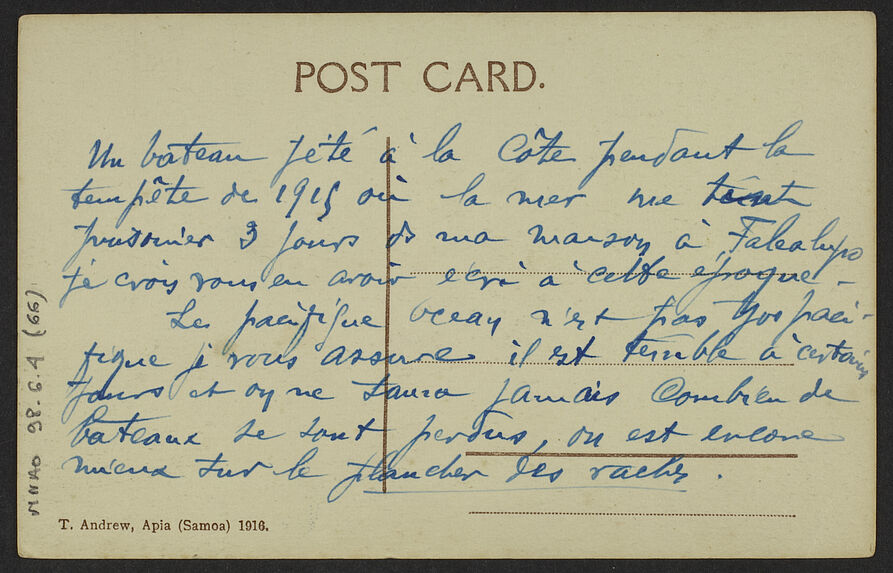 POST CARD.
Un bateau jété à la Côte pendant la
tempête de 1915 où la mer me tint
prisonier 3 jours ds ma maison à Falealupo
je crois vous en avoir écri à cette époque -
Le pacifique Ocean n'est pas tjos paci-
fique je vous assure il est terrible à certains
jours et on ne saura jamais Combien de
bateaux se sont perdus, on est encore
mieux sur le plancher des vaches.
T. Andrew, Apia (Samoa) 1916.
MNAO 98.6.4 (66)